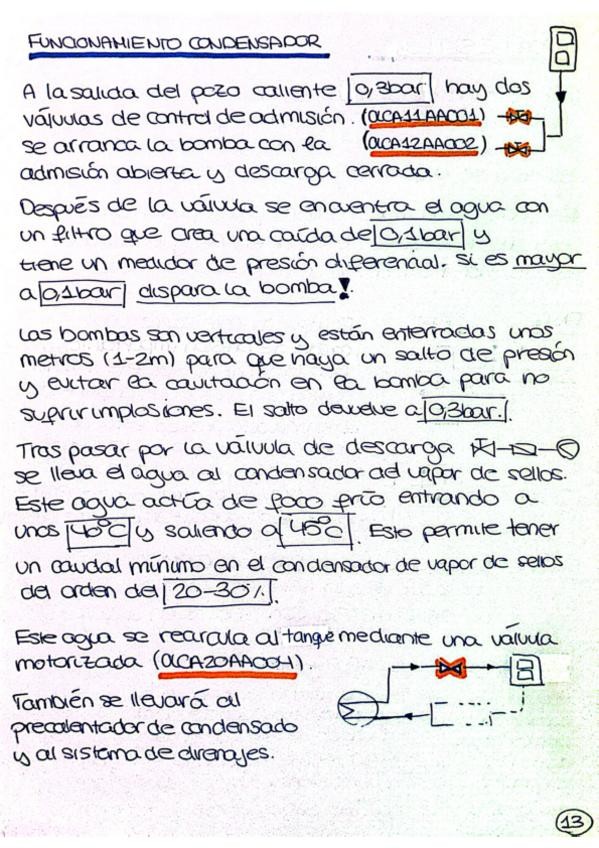 FUNCIONAMIENTO CONDENSADOR
A la salida del pozo caliente 0,3bar hay dos
válvulas de control de admisión. (0LCA11AA001)
se arranca la bomba con la (0LCA12AA002)
admisión abierta y descarga cerrada.
Después de la válvula se encuentra el agua con
un filtro que crea una caída de 0,1bar y
tiene un medidor de presión diferencial. Si es mayor
a 0,1bar dispara la bomba!
Las bombas son verticales y están enterradas unos
metros (1-2m) para que haya un salto de presión
y evitar la cavitación en la bomba para no
sufrir implosiones. El salto devuelve a 0,3bar.
Tras pasar por la válvula de descarga
se lleva el agua al condensador del vapor de sellos.
Este agua actúa de foco frío entrando a
unos 40°C y saliendo a 45°C. Esto permite tener
un caudal mínimo en el condensador de vapor de sellos
del orden del 20-30%.
Este agua se recircula al tanque mediante una válvula
motorizada (0LCA20AA004)
También se llevará al
precalentador de condensado
y al sistema de drenajes.
13